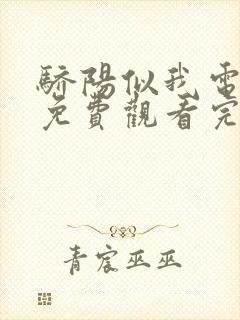 驕陽似我電
免費觀看完
青宸巫巫